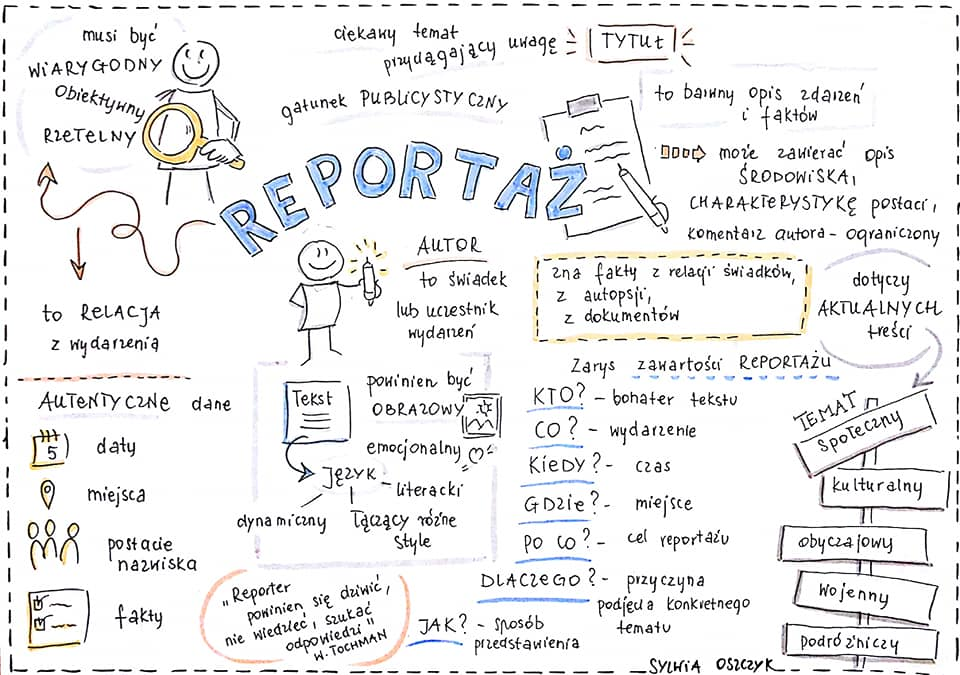 musi być
WIARYGODNY
Obiektywny
RZETELNY
ciekawy temat
przyciągający uwagę
TYTUŁ
gatunek PUBLICYSTYCZNY
REPORTAŻ
to barwny opis zdarzeń
i faktów
może zawierać opis
ŚRODOWISKA,
CHARAKTERYSTYKĘ postaci,
komentarz autora - ograniczony
to RELACJA
z wydarzenia
AUTOR
to świadek
lub uczestnik
wydarzeń
zna fakty z relacji świadków,
z autopsji,
z dokumentów
dotyczy
AKTUALNYCH
treści
AUTENTYCZNE dane
5
daty
miejsca
postacie
nazwiska
fakty
Tekst
powinien być
OBRAZOWY
emocjonalny
JĘZYK
- literacki
dynamiczny
łączący różne
style
„Reporter
powinien się dziwić,
nie wiedzieć, szukać
odpowiedzi"
W. TOCHMAN
Zarys zawartości REPORTAŻU
KTO? - bohater tekstu
CO? - wydarzenie
KIEDY? - czas
GDZIE? - miejsce
PO CO? - cel reportażu
DLACZEGO? - przyczyna
podjęcia konkretnego
tematu
JAK? - sposób
przedstawienia
TEMAT
społeczny
kulturalny
obyczajowy
wojenny
podróżniczy
SYLWIA OSZCZYK